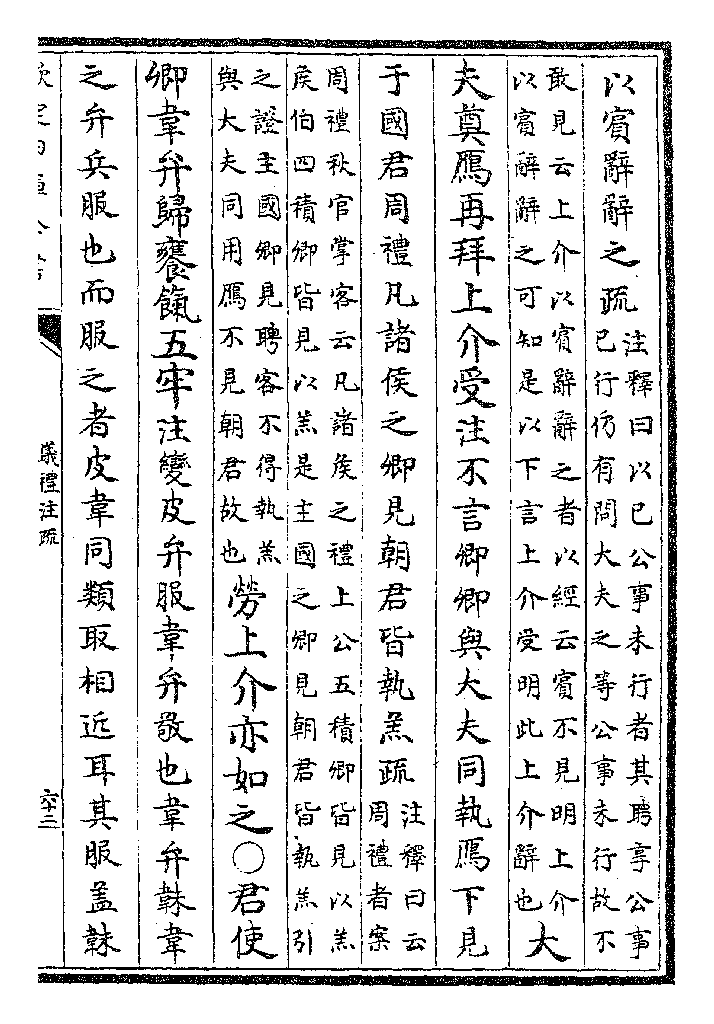 以賓辭辭之疏注釋曰以已公事未行者其聘享公事
已行仍有問大夫之等公事未行故不
敢見云上介以賓辭辭之者以經云賓不見明上介
以賓辭辭之可知是以下言上介受明此上介辭也大
夫奠鴈再拜上介受注不言卿卿與大夫同執鴈下見
于國君周禮凡諸侯之卿見朝君皆執羔疏注釋曰云
周禮者案
周禮秋官掌客云凡諸侯之禮上公五積卿皆見以羔
侯伯四積卿皆見以羔是主國之卿見朝君皆執羔引
之證主國卿見聘客不得執羔
與大夫同用鴈不見朝君故也勞上介亦如之○君使
卿韋弁歸饔餼五牢注變皮弁服韋弁敬也韋弁韎韋
之弁兵服也而服之者皮韋同類取相近耳其服蓋韎
欽定四庫全書
儀禮注疏
六十二